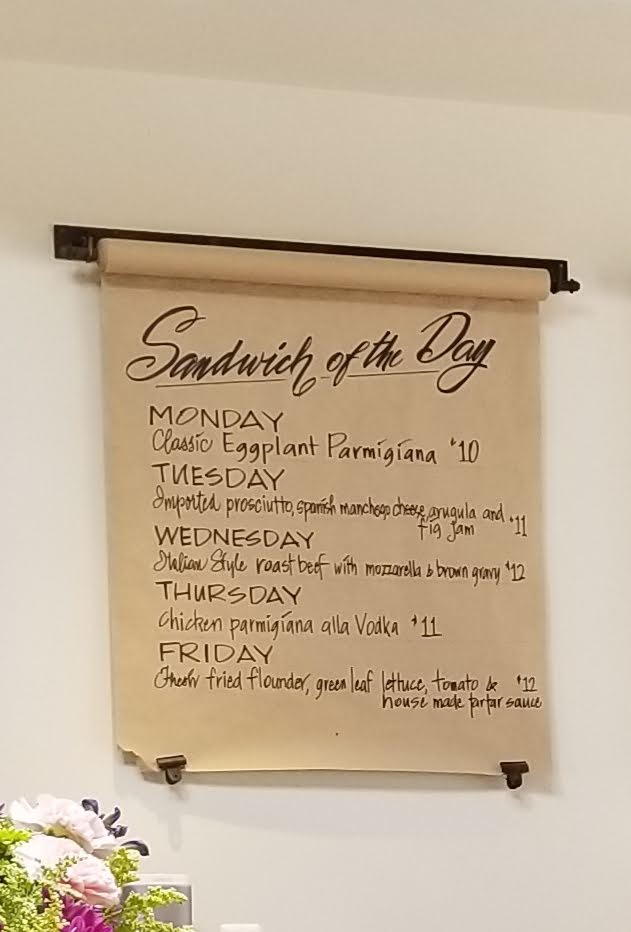 Sandwich of the Day
MONDAY
Classic Eggplant Parmigiana $10
TUESDAY
Imported prosciutto, spanish manchego cheese, arugula and
fig jam $11
WEDNESDAY
Italian Style roast beef with mozzarella & brown gravy $12
THURSDAY
Chicken parmigiana alla Vodka $11
FRIDAY
Fresh fried flounder, green leaf lettuce, tomato & $12
house made tartar sauce